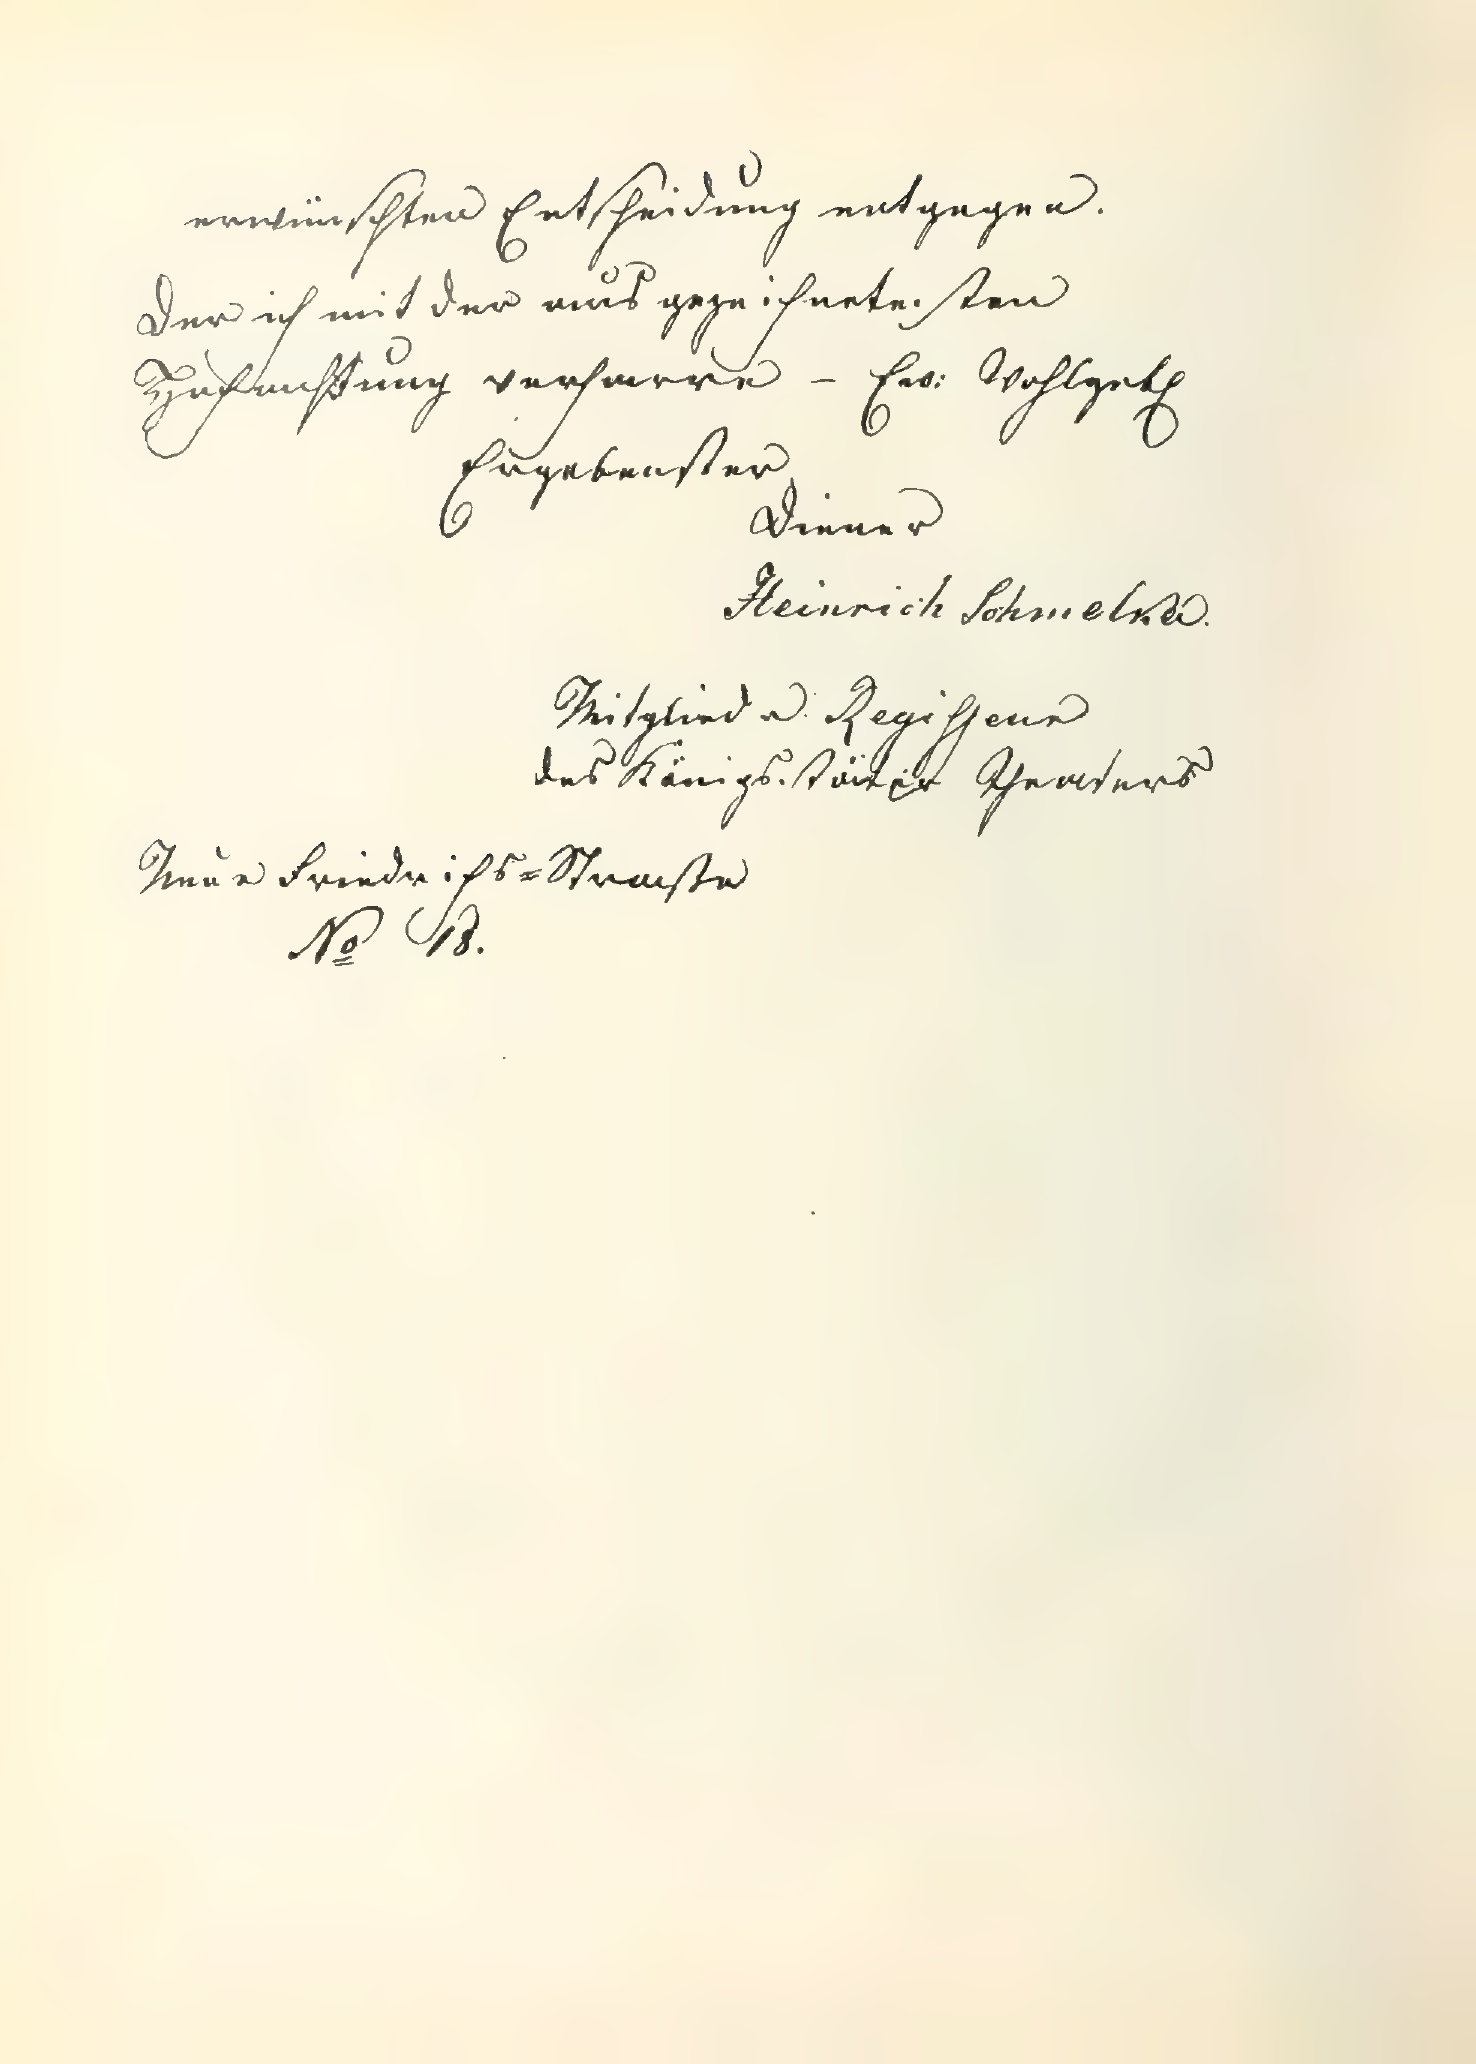 erwünschten Entscheidung entgegen.
Der ich mit der ausgezeichnetesten
Hochachtung verharre – Ew: Wohlgeb
Ergebenster
Diener
Heinrich Schmelka.
Mitglied u. Regisseur
des Königs.städter Theaters
Neue Friedrichs=Strasse
No 18.